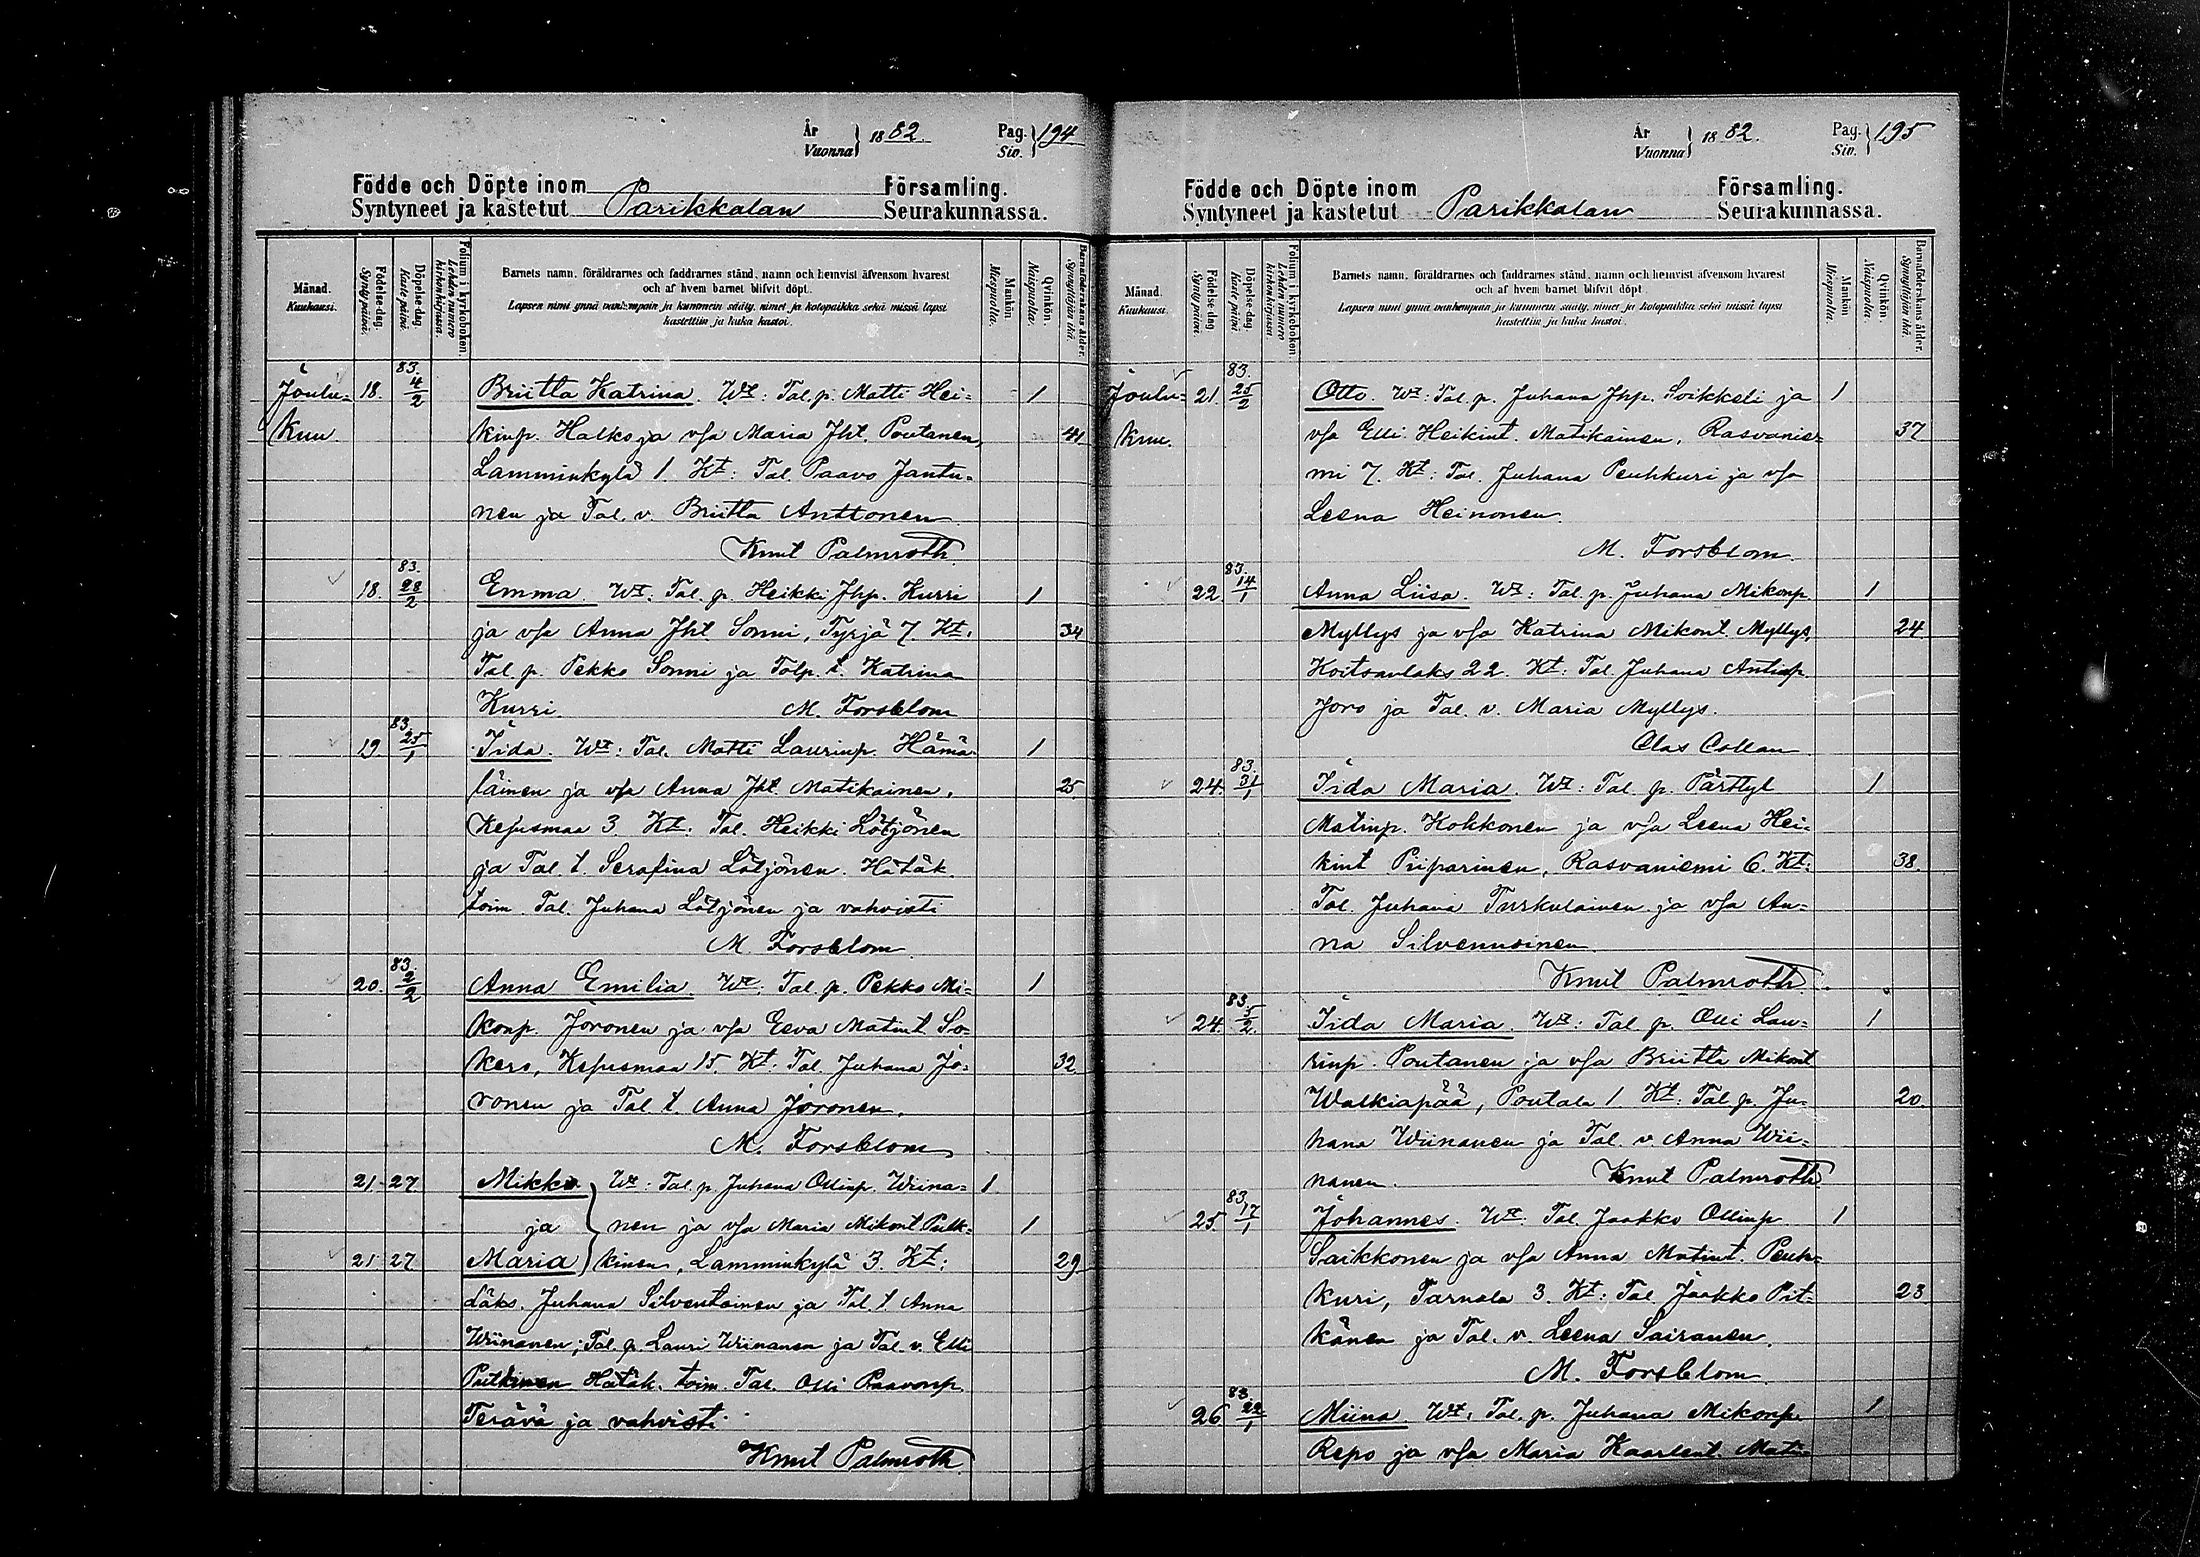 År
Vuonna } 1882.
Pag.
Siv. } 194
Födde och Döpte inom Församling.
Syntyneet ja kastetut Parikkalan Seurakunnassa.
Månad.
Kuukausi.
Födelse-dag.
Synty päivä.
Döpelse-dag.
Kaste päivä.
Folium i kyrkoboken.
Lehden numero kirkonkirjassa.
Barnets namn, föräldrarnes och faddrarnes stånd, namn och hemvist äfvensom hvarest
och af hvem barnet blifvit döpt.
Lapsen nimi ynnä vanhempain ja kummein sääty, nimet ja kotopaikka sekä missä lapsi
kastettiin ja kuka kastoi.
Mankön.
Miespuolia.
Qvinkön.
Naispuolia.
Barnaföderskans ålder.
Synnyttäjän ikä.
Joulu- 18. 83. 4/2 Briitta Katrina. Wt: Tal. p. Matti Hei- 1
kuu. kinp. Halko ja vsa Maria Jht. Poutanen, 41
Lamminkylä 1. Kt: Tal. Paavo Jantu-
nen ja Tal. v. Briitta Anttonen
Knut Palmroth
18. 83. 28/2 Emma. Wt: Tal. p. Heikki Jhp. Kurri 1
ja vsa Anna Jht Sonni, Tyrjä 7. Kt: 34
Tal. p. Pekko Sonni ja Talp. t. Katrina
Kurri. M. Forsblom
19. 83. 25/1 Iida. Wt: Tal. Matti Laurinp. Hämä- 1
läinen ja vsa Anna Jht. Matikainen, 25
Kesusmaa 3. Kt: Tal. Heikki Lötjönen
ja Tal. t. Serafina Lötjönen. Hätäk.
toim. Tal. Juhana Lötjönen ja vahvisti
M. Forsblom
20. 83. 2/2 Anna Emilia. Wt: Tal. p. Pekko Mi- 1
konp. Joronen ja vsa Eeva Matint. So-
kero, Kesusmaa 15. Kt: Tal. Juhana Jo- 32
ronen ja Tal. t. Anna Joronen.
M. Forsblom
21 27 Mikko Wt: Tal. p. Juhana Ollinp. Wiina- 1
ja nen ja vsa Maria Mikont. Putk- 1
21 27 Maria kinen, Lamminkylä 3. Kt: 29
Läks. Juhana Silventoinen ja Tal. t. Anna
Wiinanen; Tal. p. Lauri Wiinanen ja Tal. v. Elli
Putkinen Hätäk. toim. Tal. Olli Paavonp.
Terävä ja vahvisti
Knut Palmroth
År
Vuonna } 1882.
Pag.
Siv. } 195
Födde och Döpte inom Församling.
Syntyneet ja kastetut Parikkalan Seurakunnassa.
Månad.
Kuukausi.
Födelse-dag.
Synty päivä.
Döpelse-dag.
Kaste päivä.
Folium i kyrkoboken.
Lehden numero kirkonkirjassa.
Barnets namn, föräldrarnes och faddrarnes stånd, namn och hemvist äfvensom hvarest
och af hvem barnet blifvit döpt.
Lapsen nimi ynnä vanhempain ja kummein sääty, nimet ja kotopaikka sekä missä lapsi
kastettiin ja kuka kastoi.
Mankön.
Miespuolia.
Qvinkön.
Naispuolia.
Barnaföderskans ålder.
Synnyttäjän ikä.
Joulu- 21. 83. 25/2 Otto. Wt: Tal. p. Juhana Jhp. Soikkeli ja 1
kuu. vsa Elli Heikint. Matikainen, Rasvanie- 37
mi 7. Kt: Tal. Juhana Peuhkuri ja vsa
Leena Heinonen.
M. Forsblom
22. 83. 14/1 Anna Liisa. Wt: Tal. p. Juhana Mikonp. 1
Myllys ja vsa Katrina Mikont. Myllys, 24
Koitsanlaks 22. Kt: Tal. Juhana Antinp.
Joro ja Tal. v. Maria Myllys.
Clas Collan
24. 83. 31/1 Iida Maria. Wt: Tal. p. Pärttyl 1
Matinp. Kokkonen ja vsa Leena Hei-
kint Piiparinen, Rasvaniemi 6. Kt: 38.
Tal. Juhana Turkulainen ja vsa An-
na Silvennoinen
Knut Palmroth
24. 83. 5/2 Iida Maria. Wt: Tal. p. Olli Lau- 1
rinp. Poutanen ja vsa Briitta Mikont
Walkiapää, Poutala 1. Kt: Tal. p. Ju- 20.
hana Wiinanen ja Tal. v. Anna Wii-
nanen. Knut Palmroth
25. 83. 17/1 Johannes. Wt: Tal. Jaakko Ollinp. 1
Saikkonen ja vsa Anna Matint. Peuh-
kuri, Tarnala 3. Kt: Tal. Jaakko Pit- 23
känen ja Tal. v. Leena Sairanen.
M. Forsblom
26 83. 22/1 Miina. Wt: Tal. p. Juhana Mikonp. 1
Repo ja vsa Maria Kaarlent. Mati-